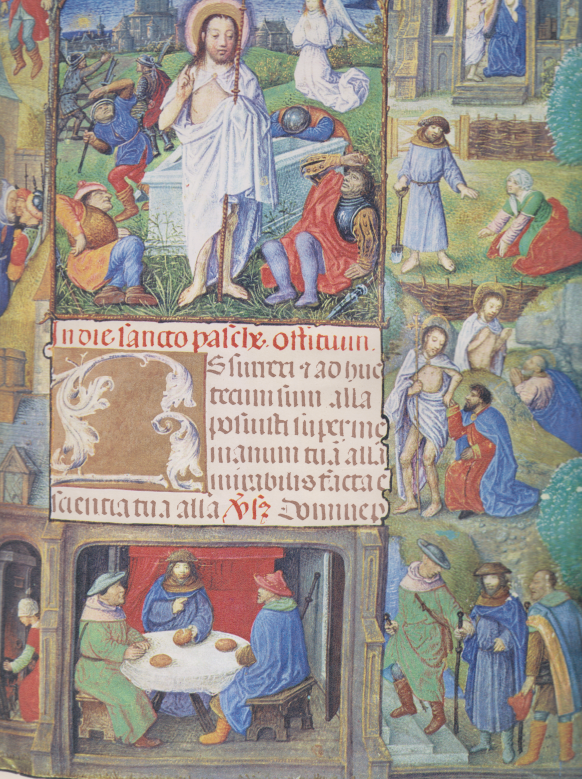 In die sancto pasche. Offitium.
REsurrexi ⁊ ad huc
tecum sum alla
posuisti super me
manum tuā alla
mirabilis facta e
sciencia tua alla Domine p